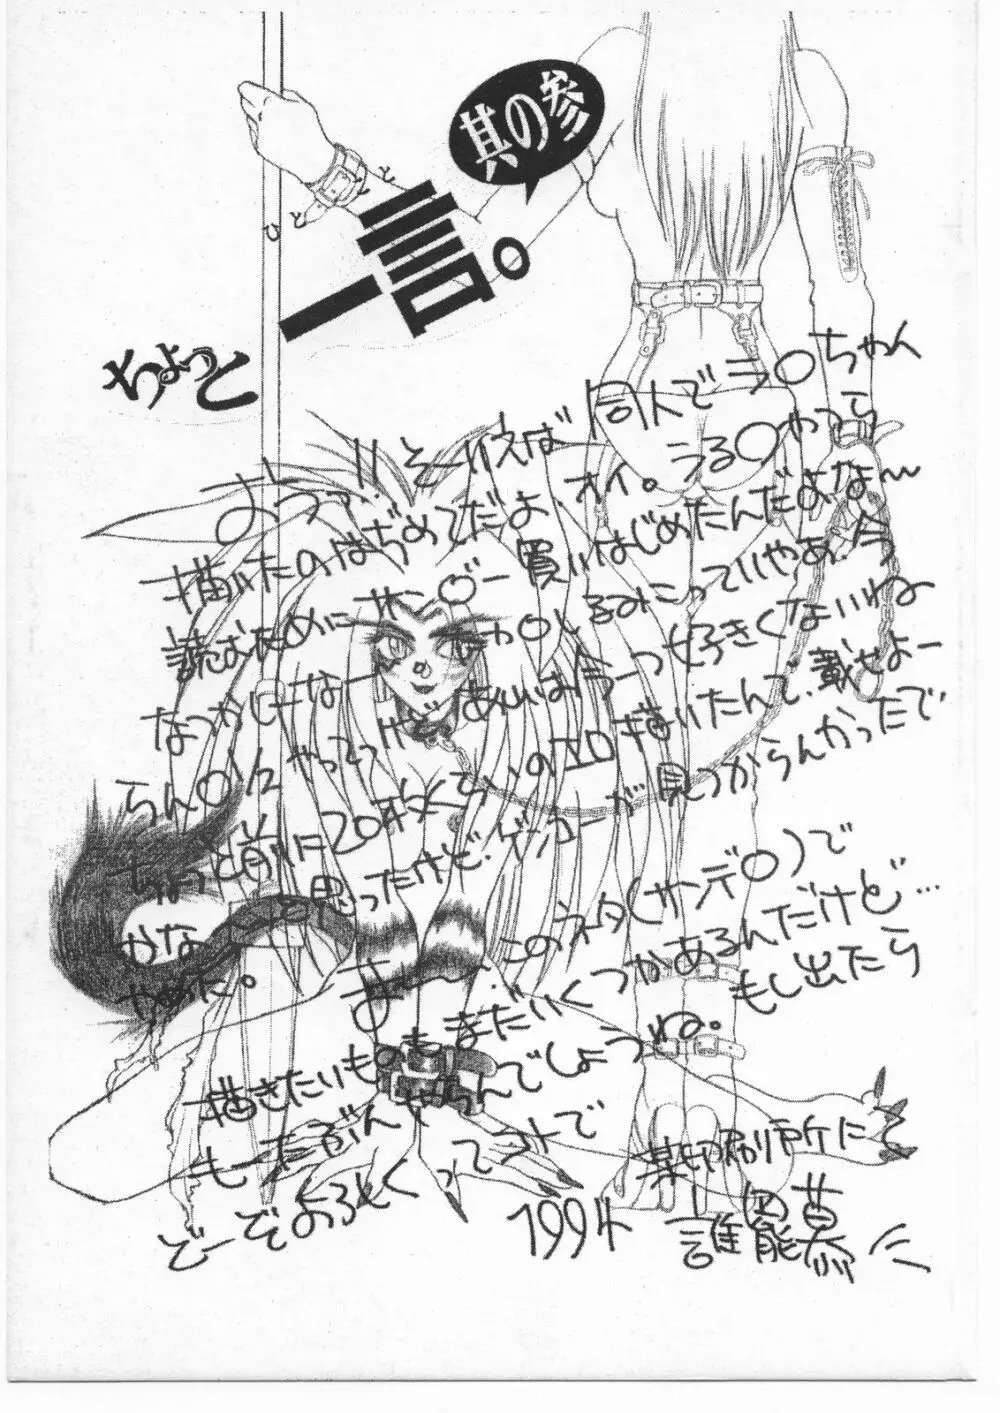 其の参
ちょっと一言。
ひとこと
おうっ!! そーいえば 同人で ラ〇ちゃん
描いたのはぢめてだよ オイ。うる〇やつら
読むために サ〇デー買いはじめたんだよな〜
なつかしーなー
らん〇1/2 やってっけど あしはあーっ好きくないわね
ちょっと前に20枚くらいの エロ 描いたんで、載せよー
かな と思ったけど、ゲンコーが見つからんかったで
やめた。 まー、このネタ(サンデ〇)で
描きたいものもまだいくつかあるんだけど…
もーたぶんやらんでしょうね。もし出たら
どーぞよろしくってコトで
1994 某印刷所にて